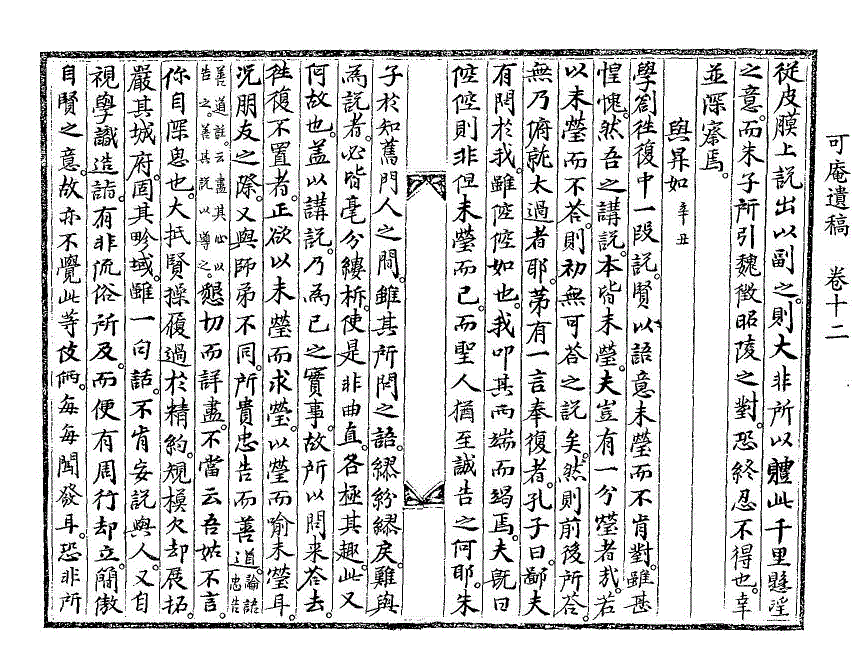 可庵遺稿　卷十二
從皮膜上說出以副之。則大非所以體此千里懸淫
之意。而朱子所引魏徵昭陵之對。恐終忍不得也。幸
並深察焉。
與昇如 辛丑
學劄往復中一段說。賢以語意未瑩而不肯對。雖甚
惶愧。然吾之講說。本皆未瑩。夫豈有一分瑩者哉。若
以未瑩而不答。則初無可答之說矣。然則前後所答。
無乃俯就太過者耶。第有一言奉復者。孔子曰。鄙夫
有問於我。雖倥倥如也。我叩其兩端而竭焉。夫旣曰
倥倥則非但未瑩而已。而聖人猶至誠告之何耶。朱
子於知舊門人之間。雖其所問之語。繆紛繆戾。難與
爲說者。必皆毫分縷柝。使是非曲直。各極其趣。此又
何故也。盖以講說。乃爲己之實事。故所以問來答去。
往復不置者。正欲以未瑩而求瑩。以瑩而喩未瑩耳。
况朋友之際。又與師弟不同。所貴忠告而善道。論語忠告
善道註。云盡其心以告之。善其說以導之。懇切而詳盡。不當云吾姑不言。
你自深思也。大抵賢操履過於精約。規模欠却展拓。
嚴其城府。固其畛域。雖一句話。不肯妄說與人。又自
視學識造詣。有非流俗所及。而便有周行却立。簡傲
自賢之意。故亦不覺此等伎倆。每每闖發耳。恐非所